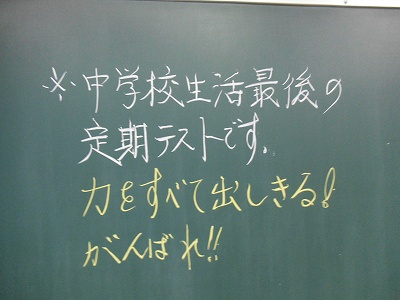 ※中学校生活最後の
定期テストです。
力をすべて出しきる!
がんばれ!!